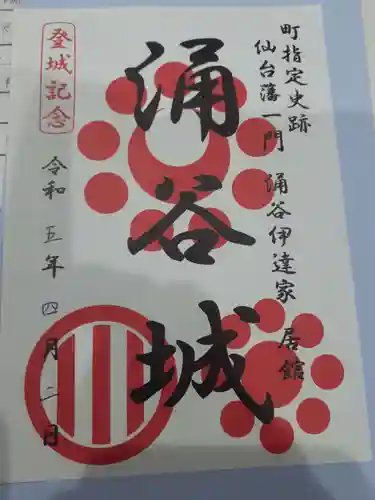 町指定史跡
仙台藩一門 涌谷伊達家 居館
涌谷城
登城記念
令和五年四月二日